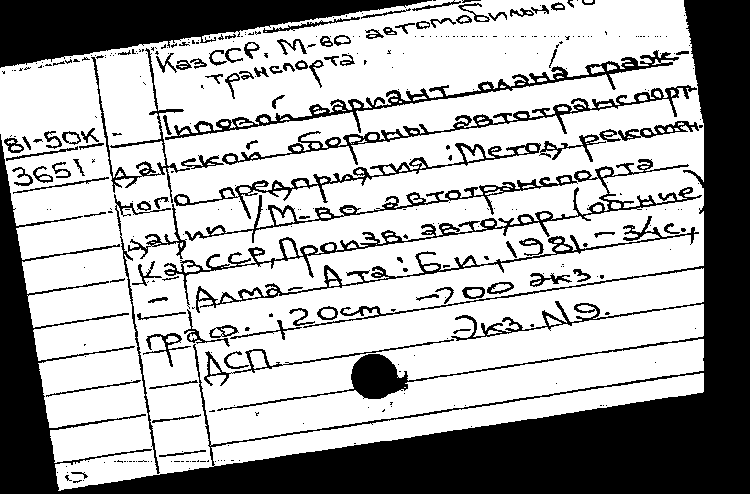 КазССР. М-во автомобильного
транспорта.
81-50К - Типовой вариант плана граж-
3651 данской обороны автотранспорт-
ного предприятия : Метод. рекомен-
дации / М-во автотранспорта
КазССР, Произв. автоупр. (об-ние)
. - Алма-Ата : Б.и., 1981. -
граф. ; 20см. - 700 экз.
ДСП. Экз. N9.